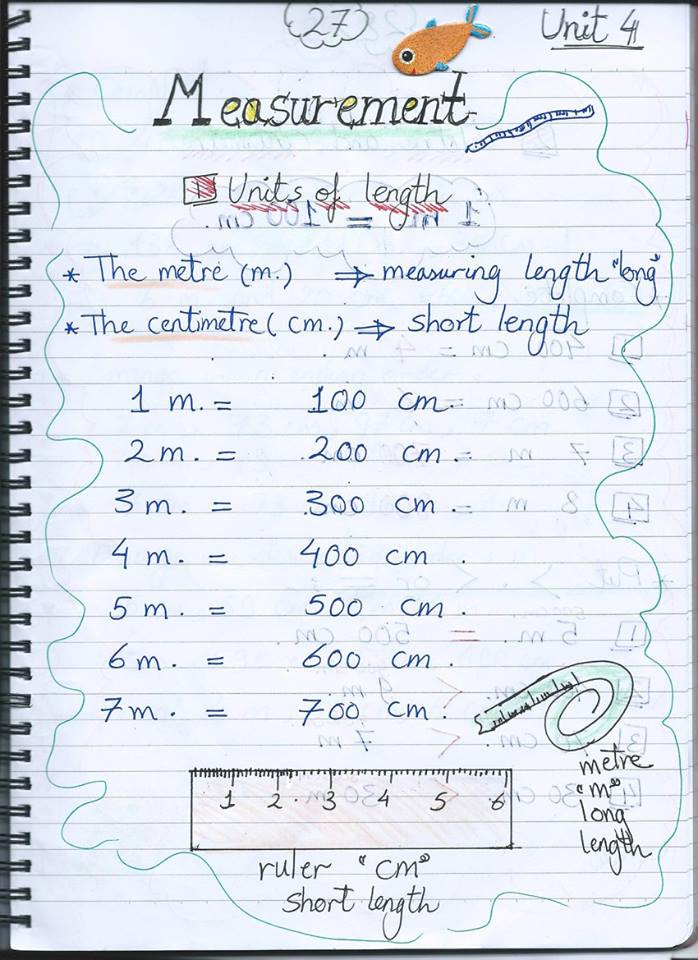 27
Unit 4
Measurement
1 Units of length
* The metre (m.) ⇒ measuring length "long"
* The centimetre (cm.) ⇒ short length
1 m. = 100 cm.
2 m. = 200 cm.
3 m. = 300 cm.
4 m. = 400 cm.
5 m. = 500 cm.
6 m. = 600 cm.
7 m. = 700 cm.
1 2 3 4 5 6
ruler "cm"
short length
metre
"m"
long
length